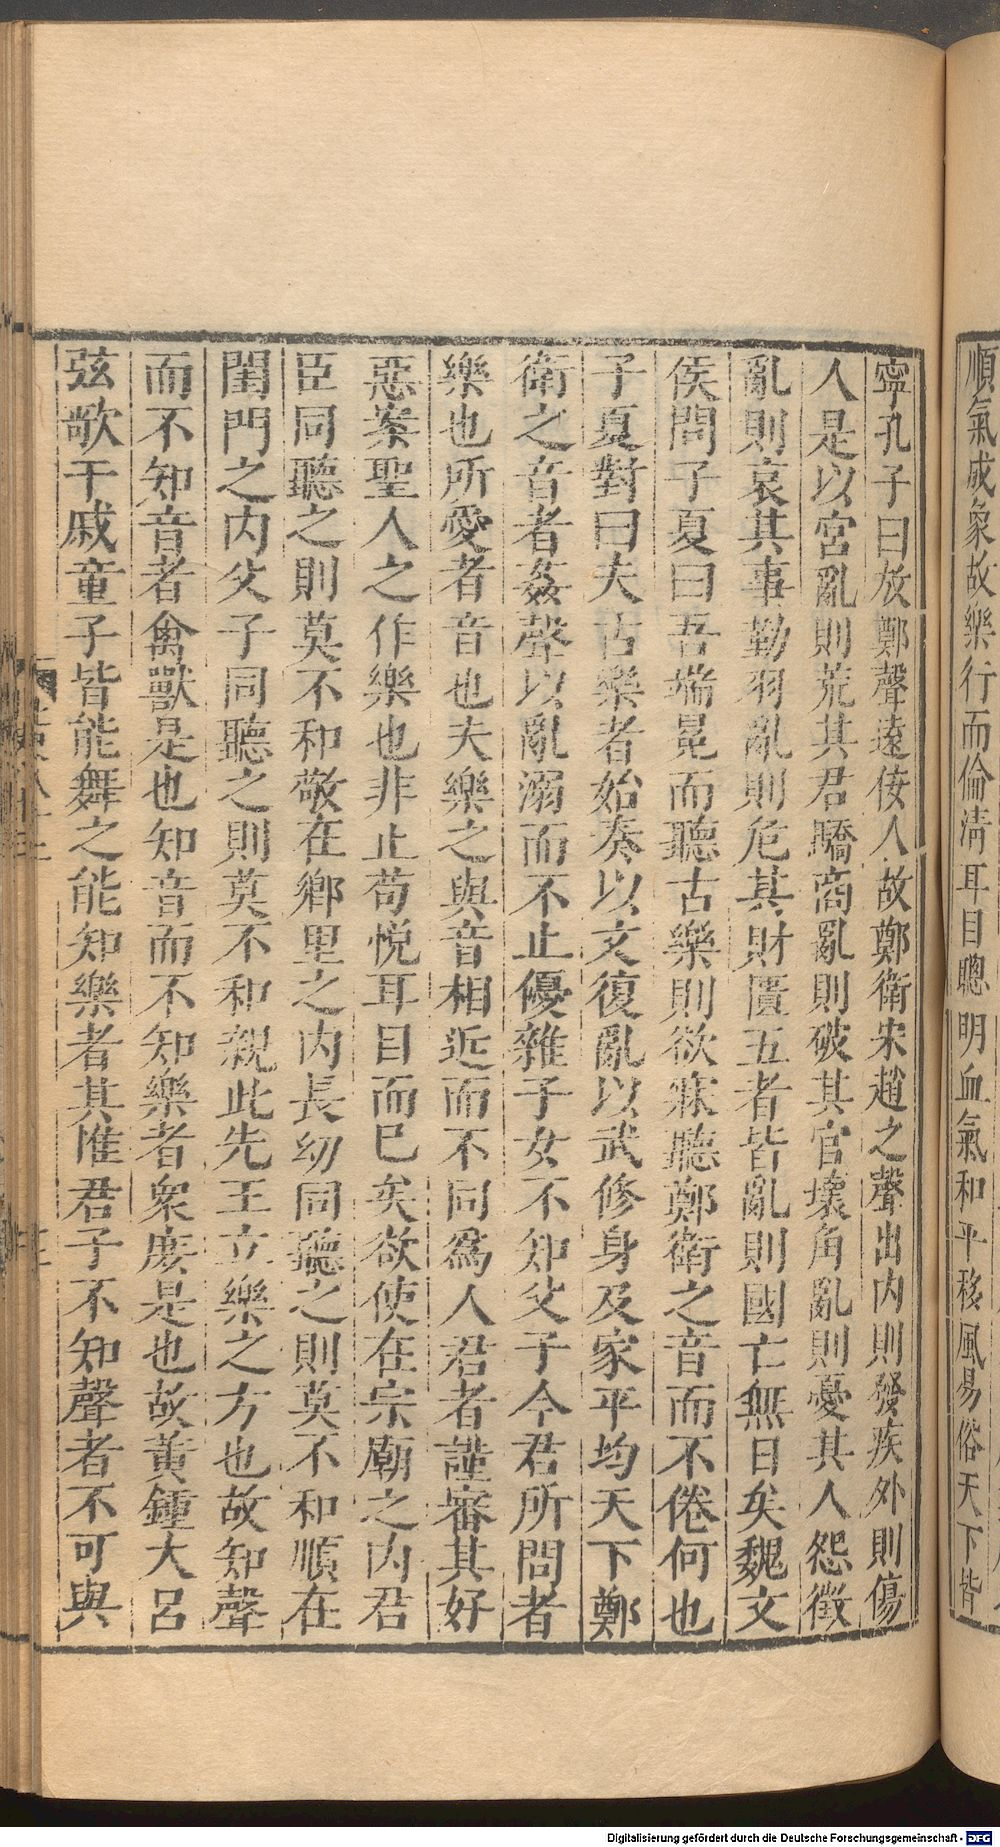 順氣成象故樂行而倫淸耳目聰明血氣和平移風易俗天下皆
寧孔子曰放鄭聲遠佞人故鄭衛宋趙之聲出內則發疾外則傷
人是以宮亂則荒其君驕商亂則破其官壞角亂則憂其人怨徵
亂則哀其事勤羽亂則危其財匱五者皆亂則國亡無日矣魏文
侯問子夏曰吾端冕而聽古樂則欲寐聽鄭衛之音而不倦何也
子夏對曰夫古樂者始奏以文復亂以武修身及家平均天下鄭
衛之音者姦聲以亂溺而不止優雜子女不知父子今君所問者
樂也所愛者音也夫樂之與音相近而不同爲人君者謹審其好
惡案聖人之作樂也非止苟悅耳目而已矣欲使在宗廟之內君
臣同聽之則莫不和敬在鄉里之內長幼同聽之則莫不和順在
閨門之內父子同聽之則莫不和親此先王立樂之方也故知聲
而不知音者禽獸是也知音而不知樂者衆庶是也故黃鍾大呂
弦歌干戚童子皆能舞之能知樂者其惟君子不知聲者不可與
Digitalisierung gefördert durch die Deutsche Forschungsgemeinschaft - DFG